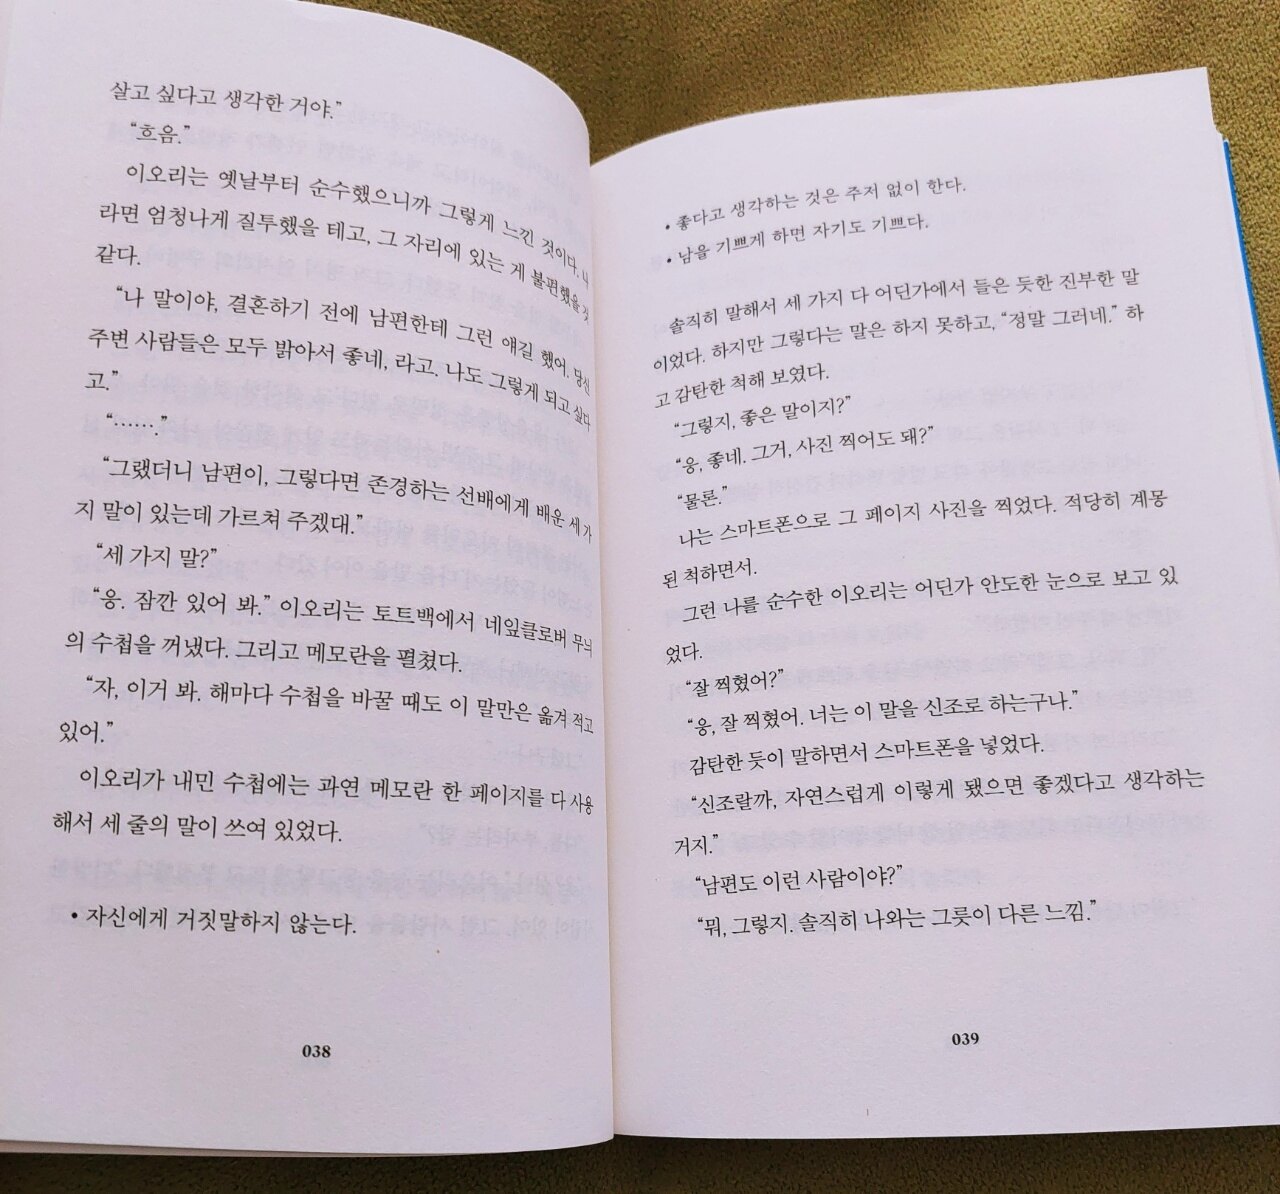 살고 싶다고 생각한 거야.”
“흐음.”
이오리는 옛날부터 순수했으니까 그렇게 느낀 것이다. 나
라면 엄청나게 질투했을 테고, 그 자리에 있는 게 불편했을 것
같다.
“나 말이야, 결혼하기 전에 남편한테 그런 얘길 했어. 당신
주변 사람들은 모두 밝아서 좋네, 라고. 나도 그렇게 되고 싶다
고.”
“…… ”
“그랬더니 남편이, 그렇다면 존경하는 선배에게 배운 세 가
지 말이 있는데 가르쳐 주겠대.”
“세 가지 말?”
“응. 잠깐 있어 봐.” 이오리는 토트백에서 네잎클로버 무늬
의 수첩을 꺼냈다. 그리고 메모란을 펼쳤다.
“자, 이거 봐. 해마다 수첩을 바꿀 때도 이 말만은 옮겨 적고
있어.”
이오리가 내민 수첩에는 과연 메모란 한 페이지를 다 사용
해서 세 줄의 말이 쓰여 있었다.
• 자신에게 거짓말하지 않는다.
038
• 좋다고 생각하는 것은 주저 없이 한다.
• 남을 기쁘게 하면 자기도 기쁘다.
솔직히 말해서 세 가지 다 어딘가에서 들은 듯한 진부한 말
이었다. 하지만 그렇다는 말은 하지 못하고, “정말 그러네.” 하
고 감탄한 척해 보였다.
“그렇지, 좋은 말이지?”
“응, 좋네. 그거, 사진 찍어도 돼?”
“물론.”
나는 스마트폰으로 그 페이지 사진을 찍었다. 적당히 계몽
된 척하면서.
그런 나를 순수한 이오리는 어딘가 안도한 눈으로 보고 있
었다.
“잘 찍혔어?”
“응, 잘 찍혔어. 너는 이 말을 신조로 하는구나.”
감탄한 듯이 말하면서 스마트폰을 넣었다.
“신조랄까, 자연스럽게 이렇게 됐으면 좋겠다고 생각하는
거지.”
“남편도 이런 사람이야?”
“뭐, 그렇지. 솔직히 나와는 그릇이 다른 느낌.”
039